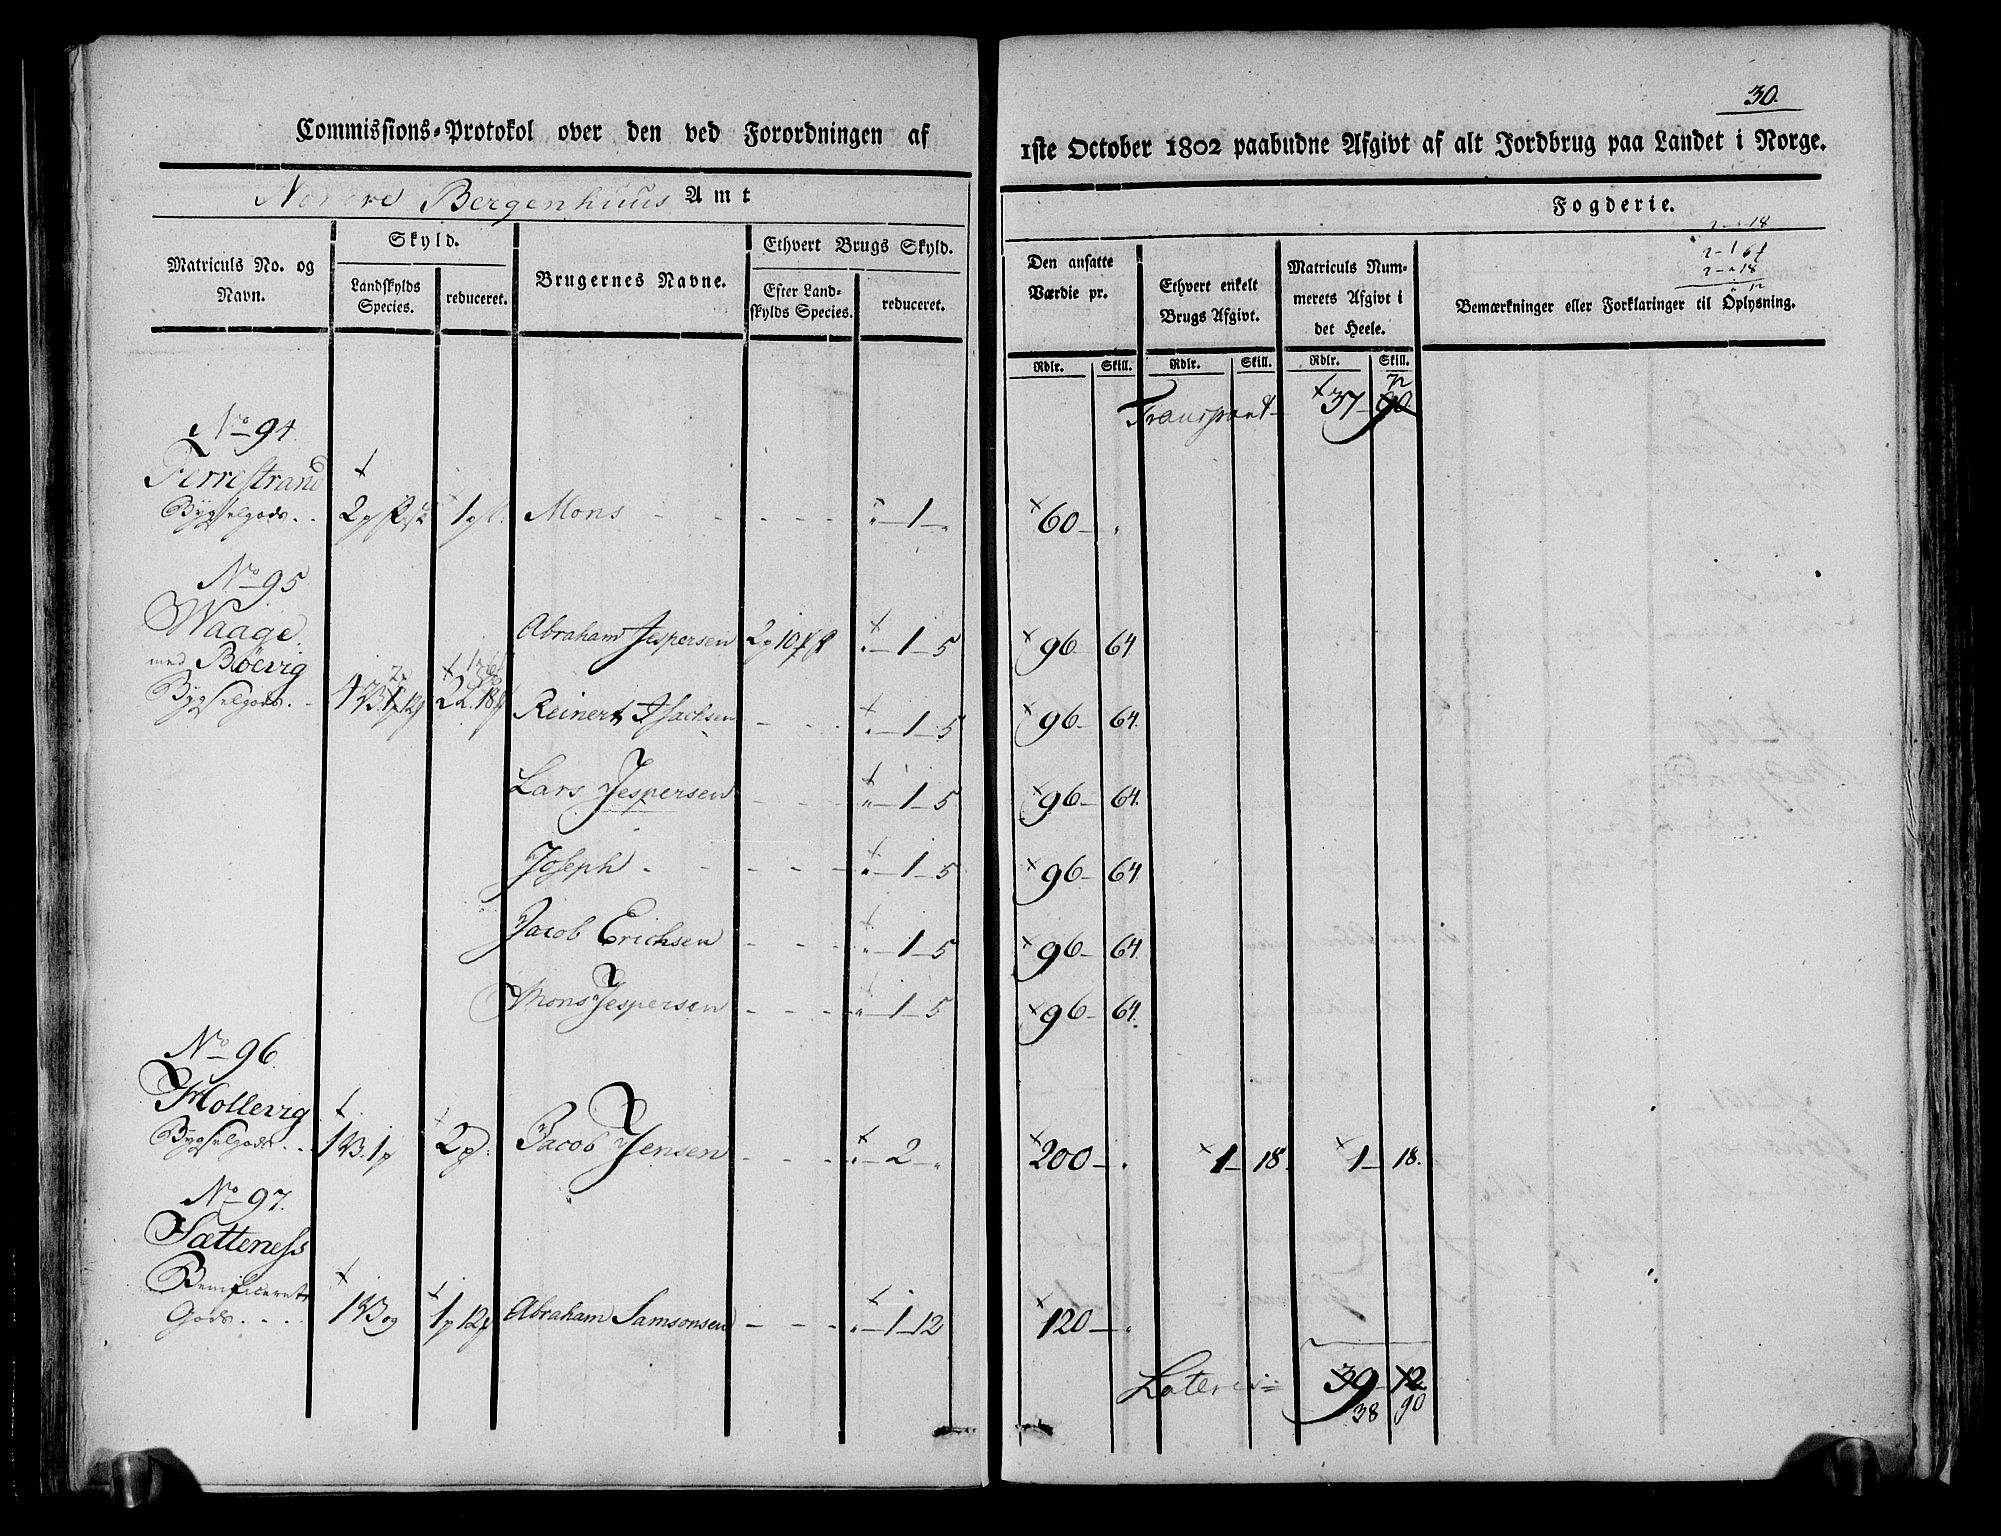 30.
Commissions-Protokol over den ved Forordningen af 1ste October 1802 paabudne Afgivt af alt Jordbrug paa Landet i Norge.
Nordre Bergenhuus Amt
Fogderie.
Matriculs No. og Navn.
Skyld.
Landskylds Species.
reduceret.
Brugernes Navne.
Ethvert Brugs Skyld.
Efter Landskylds Species.
reduceret.
Den ansatte Værdie pr.
Rdlr. Skill.
Ethvert enkelt Brugs Afgivt.
Rdlr. Skill.
Matriculs Nummerets Afgivt i det Heele.
Rdlr. Skill.
Bemærkninger eller Forklaringer til Oplysning.
Transport 37 90 72
No 94
Ferrestrand
Bygselgods Mons " 1 " 60 "
No 95
Waage
med Böevig
Bygselgods
Abraham Jespersen " 1 5 96 64
Reinert Isachsen " 1 5 96 64
Lars Jespersen " 1 5 96 64
Joseph " 1 5 96 64
Jacob Erichsen " 1 5 96 64
Mons Jespersen " 1 5 96 64
No 96
Hollevig
Bygselgods Jacob Jensen " 2 " 200 " 1 18 1 18
No 97
Sætteness
Benificeret
Gods Abraham Samsonsen " 1 12 120 "
Lateris 39 12
38 90